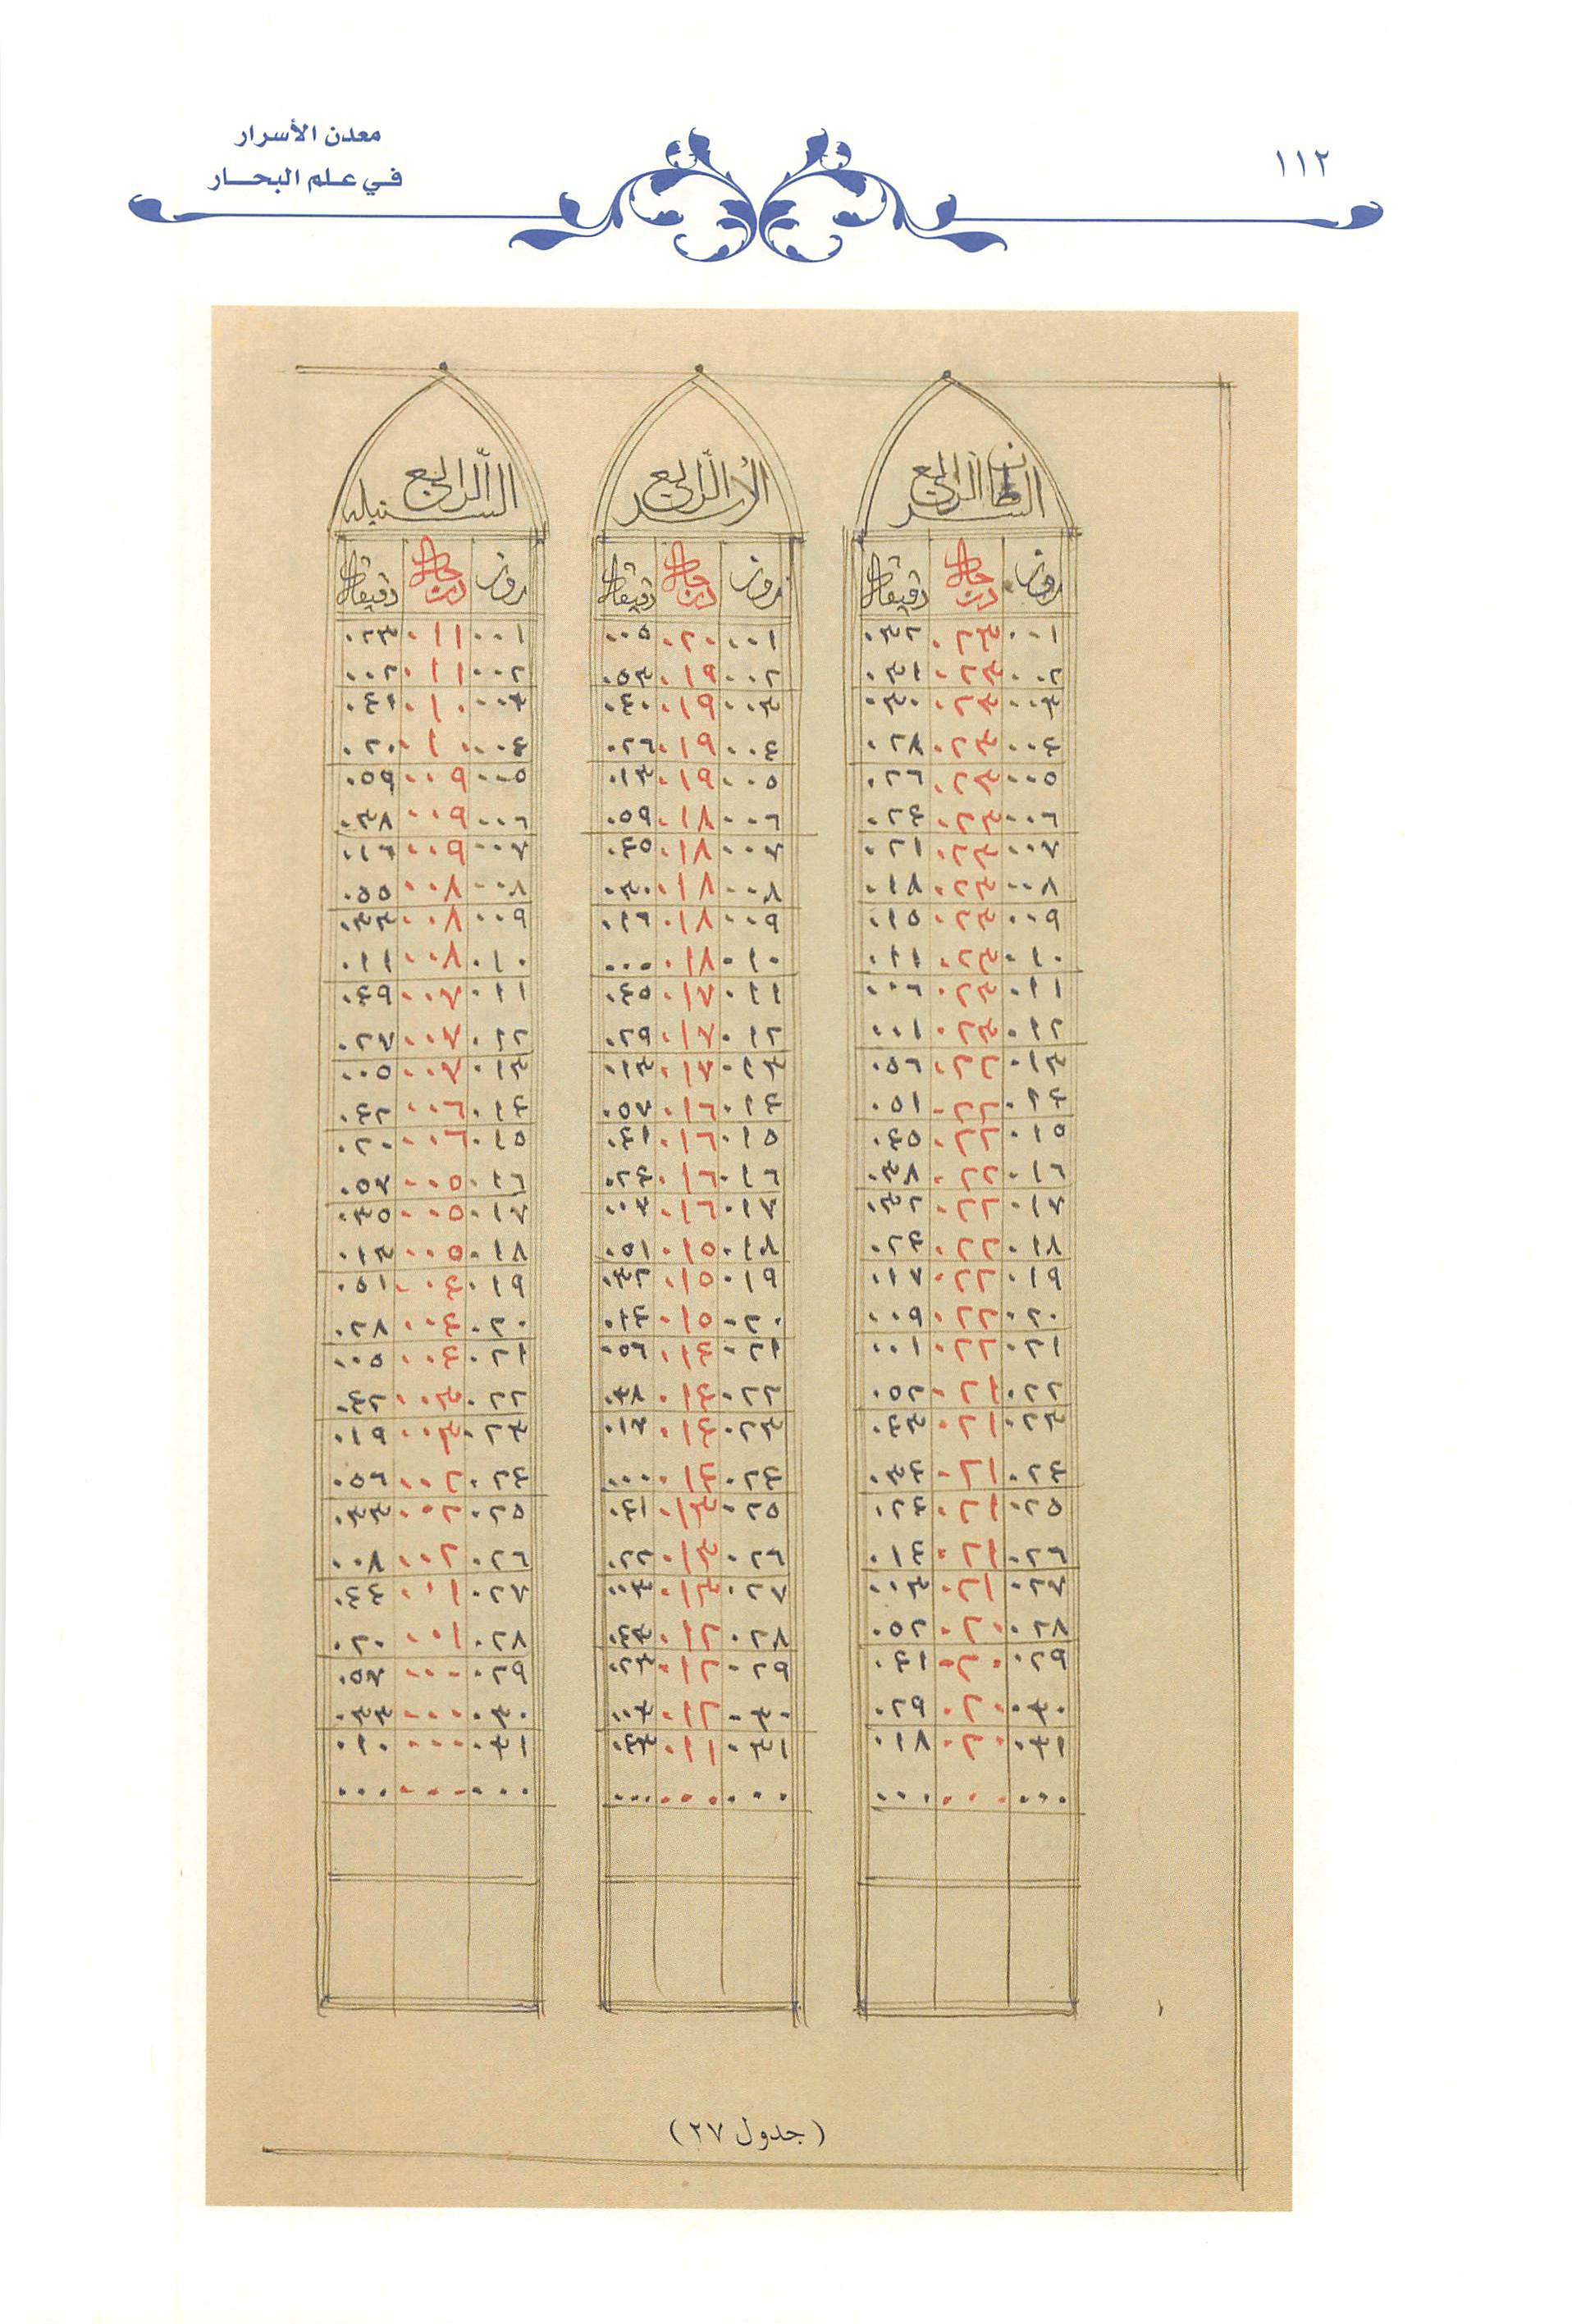 ١١٢
معدن الأسرار
في علم البحار
السرطان الرابع
روز درجات دقيقات
٠٠١ ٠٢٣ ٠٣٢
٠٠٢ ٠٢٣ ٠٣١
٠٠٣ ٠٢٣ ٠٣٠
٠٠٤ ٠٢٣ ٠٢٨
٠٠٥ ٠٢٣ ٠٢٦
٠٠٦ ٠٢٣ ٠٢٤
٠٠٧ ٠٢٣ ٠٢١
٠٠٨ ٠٢٣ ٠١٨
٠٠٩ ٠٢٣ ٠١٥
٠١٠ ٠٢٣ ٠١١
٠١١ ٠٢٣ ٠٠٦
٠١٢ ٠٢٣ ٠٠١
٠١٣ ٠٢٢ ٠٥٦
٠١٤ ٠٢٢ ٠٥١
٠١٥ ٠٢٢ ٠٤٥
٠١٦ ٠٢٢ ٠٣٨
٠١٧ ٠٢٢ ٠٣٢
٠١٨ ٠٢٢ ٠٢٤
٠١٩ ٠٢٢ ٠١٧
٠٢٠ ٠٢٢ ٠٠٩
٠٢١ ٠٢٢ ٠٠١
٠٢٢ ٠٢١ ٠٥٢
٠٢٣ ٠٢١ ٠٤٣
٠٢٤ ٠٢١ ٠٣٤
٠٢٥ ٠٢١ ٠٢٤
٠٢٦ ٠٢١ ٠١٤
٠٢٧ ٠٢١ ٠٠٣
٠٢٨ ٠٢٠ ٠٥٢
٠٢٩ ٠٢٠ ٠٤١
٠٣٠ ٠٢٠ ٠٢٩
٠٣١ ٠٢٠ ٠١٨
٠٠٠ ٠٠٠ ٠٠٠
الأسد الرابع
روز درجات دقيقات
٠٠١ ٠٢٠ ٠٠٥
٠٠٢ ٠١٩ ٠٥٣
٠٠٣ ٠١٩ ٠٤٠
٠٠٤ ٠١٩ ٠٢٦
٠٠٥ ٠١٩ ٠١٣
٠٠٦ ٠١٨ ٠٥٩
٠٠٧ ٠١٨ ٠٤٥
٠٠٨ ٠١٨ ٠٣٠
٠٠٩ ٠١٨ ٠١٦
٠١٠ ٠١٨ ٠٠٠
٠١١ ٠١٧ ٠٤٥
٠١٢ ٠١٧ ٠٢٩
٠١٣ ٠١٧ ٠١٣
٠١٤ ٠١٦ ٠٥٧
٠١٥ ٠١٦ ٠٤١
٠١٦ ٠١٦ ٠٢٤
٠١٧ ٠١٦ ٠٠٧
٠١٨ ٠١٥ ٠٥١
٠١٩ ٠١٥ ٠٣٢
٠٢٠ ٠١٥ ٠١٤
٠٢١ ٠١٤ ٠٥٦
٠٢٢ ٠١٤ ٠٣٨
٠٢٣ ٠١٤ ٠١٧
٠٢٤ ٠١٤ ٠٠٠
٠٢٥ ٠١٣ ٠٤١
٠٢٦ ٠١٣ ٠٢٢
٠٢٧ ٠١٣ ٠٠٣
٠٢٨ ٠١٢ ٠٤٣
٠٢٩ ٠١٢ ٠٢٣
٠٣٠ ٠١٢ ٠٠٣
٠٣١ ٠١١ ٠٤٣
٠٠٠ ٠٠٠ ٠٠٠
السنبله الرابع
روز درجات دقيقات
٠٠١ ٠١١ ٠٢٣
٠٠٢ ٠١١ ٠٠٢
٠٠٣ ٠١٠ ٠٤١
٠٠٤ ٠١٠ ٠٢٠
٠٠٥ ٠٠٩ ٠٥٩
٠٠٦ ٠٠٩ ٠٣٨
٠٠٧ ٠٠٩ ٠١٦
٠٠٨ ٠٠٨ ٠٥٥
٠٠٩ ٠٠٨ ٠٣٣
٠١٠ ٠٠٨ ٠١١
٠١١ ٠٠٧ ٠٤٩
٠١٢ ٠٠٧ ٠٢٧
٠١٣ ٠٠٧ ٠٠٥
٠١٤ ٠٠٦ ٠٤٢
٠١٥ ٠٠٦ ٠٢٠
٠١٦ ٠٠٥ ٠٥٧
٠١٧ ٠٠٥ ٠٣٥
٠١٨ ٠٠٥ ٠١٣
٠١٩ ٠٠٤ ٠٥١
٠٢٠ ٠٠٤ ٠٢٨
٠٢١ ٠٠٤ ٠٠٥
٠٢٢ ٠٠٣ ٠٤٢
٠٢٣ ٠٠٣ ٠١٩
٠٢٤ ٠٠٢ ٠٥٦
٠٢٥ ٠٠٢ ٠٣٣
٠٢٦ ٠٠٢ ٠٠٨
٠٢٧ ٠٠١ ٠٤٤
٠٢٨ ٠٠١ ٠٢٠
٠٢٩ ٠٠٠ ٠٥٧
٠٣٠ ٠٠٠ ٠٣٣
٠٣١ ٠٠٠ ٠١٠
٠٠٠ ٠٠٠ ٠٠٠
(جدول ٢٧)